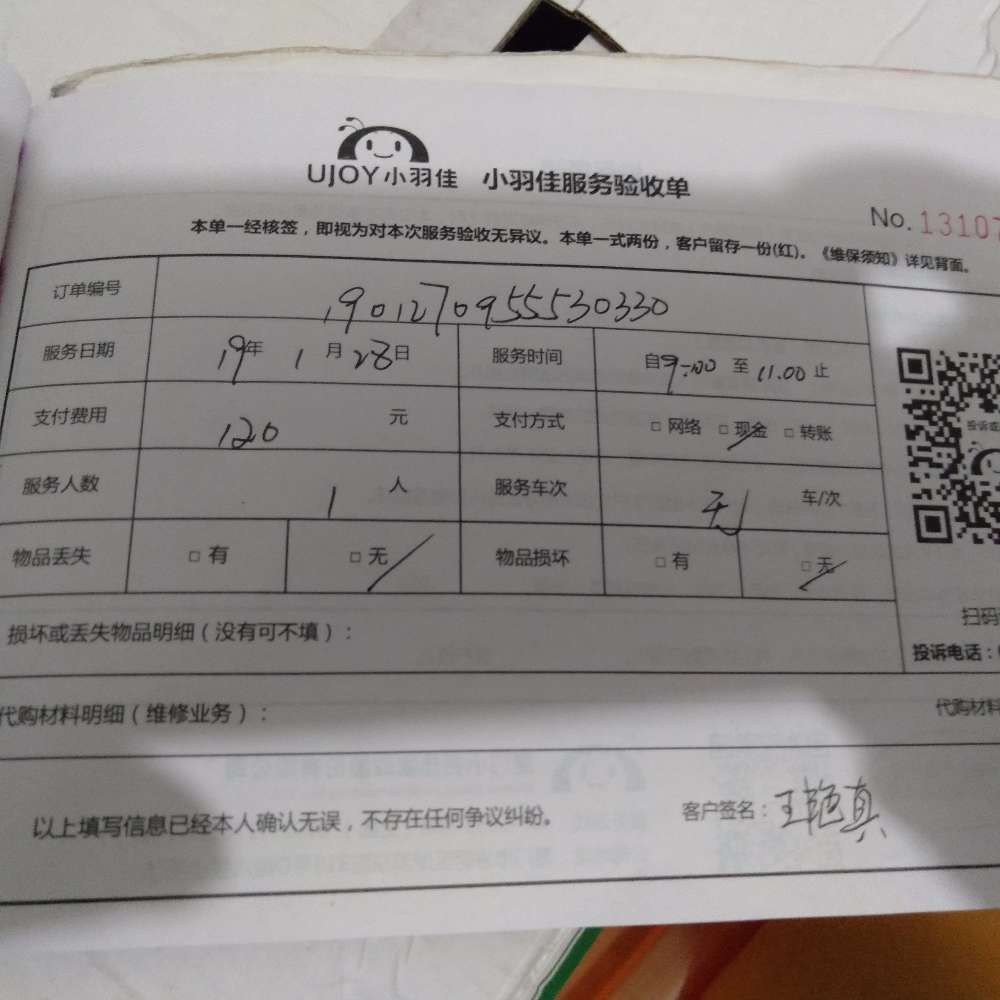 UJOY小羽佳 小羽佳服务验收单
No. 13107
本单一经核签，即视为对本次服务验收无异议。本单一式两份，客户留存一份(红)。《维保须知》详见背面。
订单编号 190127095530330
服务日期 19年 1月28日 服务时间 自9:00 至 11.00 止
支付费用 120 元 支付方式 □ 网络 □ 现金 □ 转账
投诉或
服务人数 1 人 服务车次 无 车/次
物品丢失 □ 有 □ 无 物品损坏 □ 有 □ 无
扫码
损坏或丢失物品明细（没有可不填）：
投诉电话：
代购材料明细（维修业务）：
代购材料
以上填写信息已经本人确认无误，不存在任何争议纠纷。
客户签名：王艳真